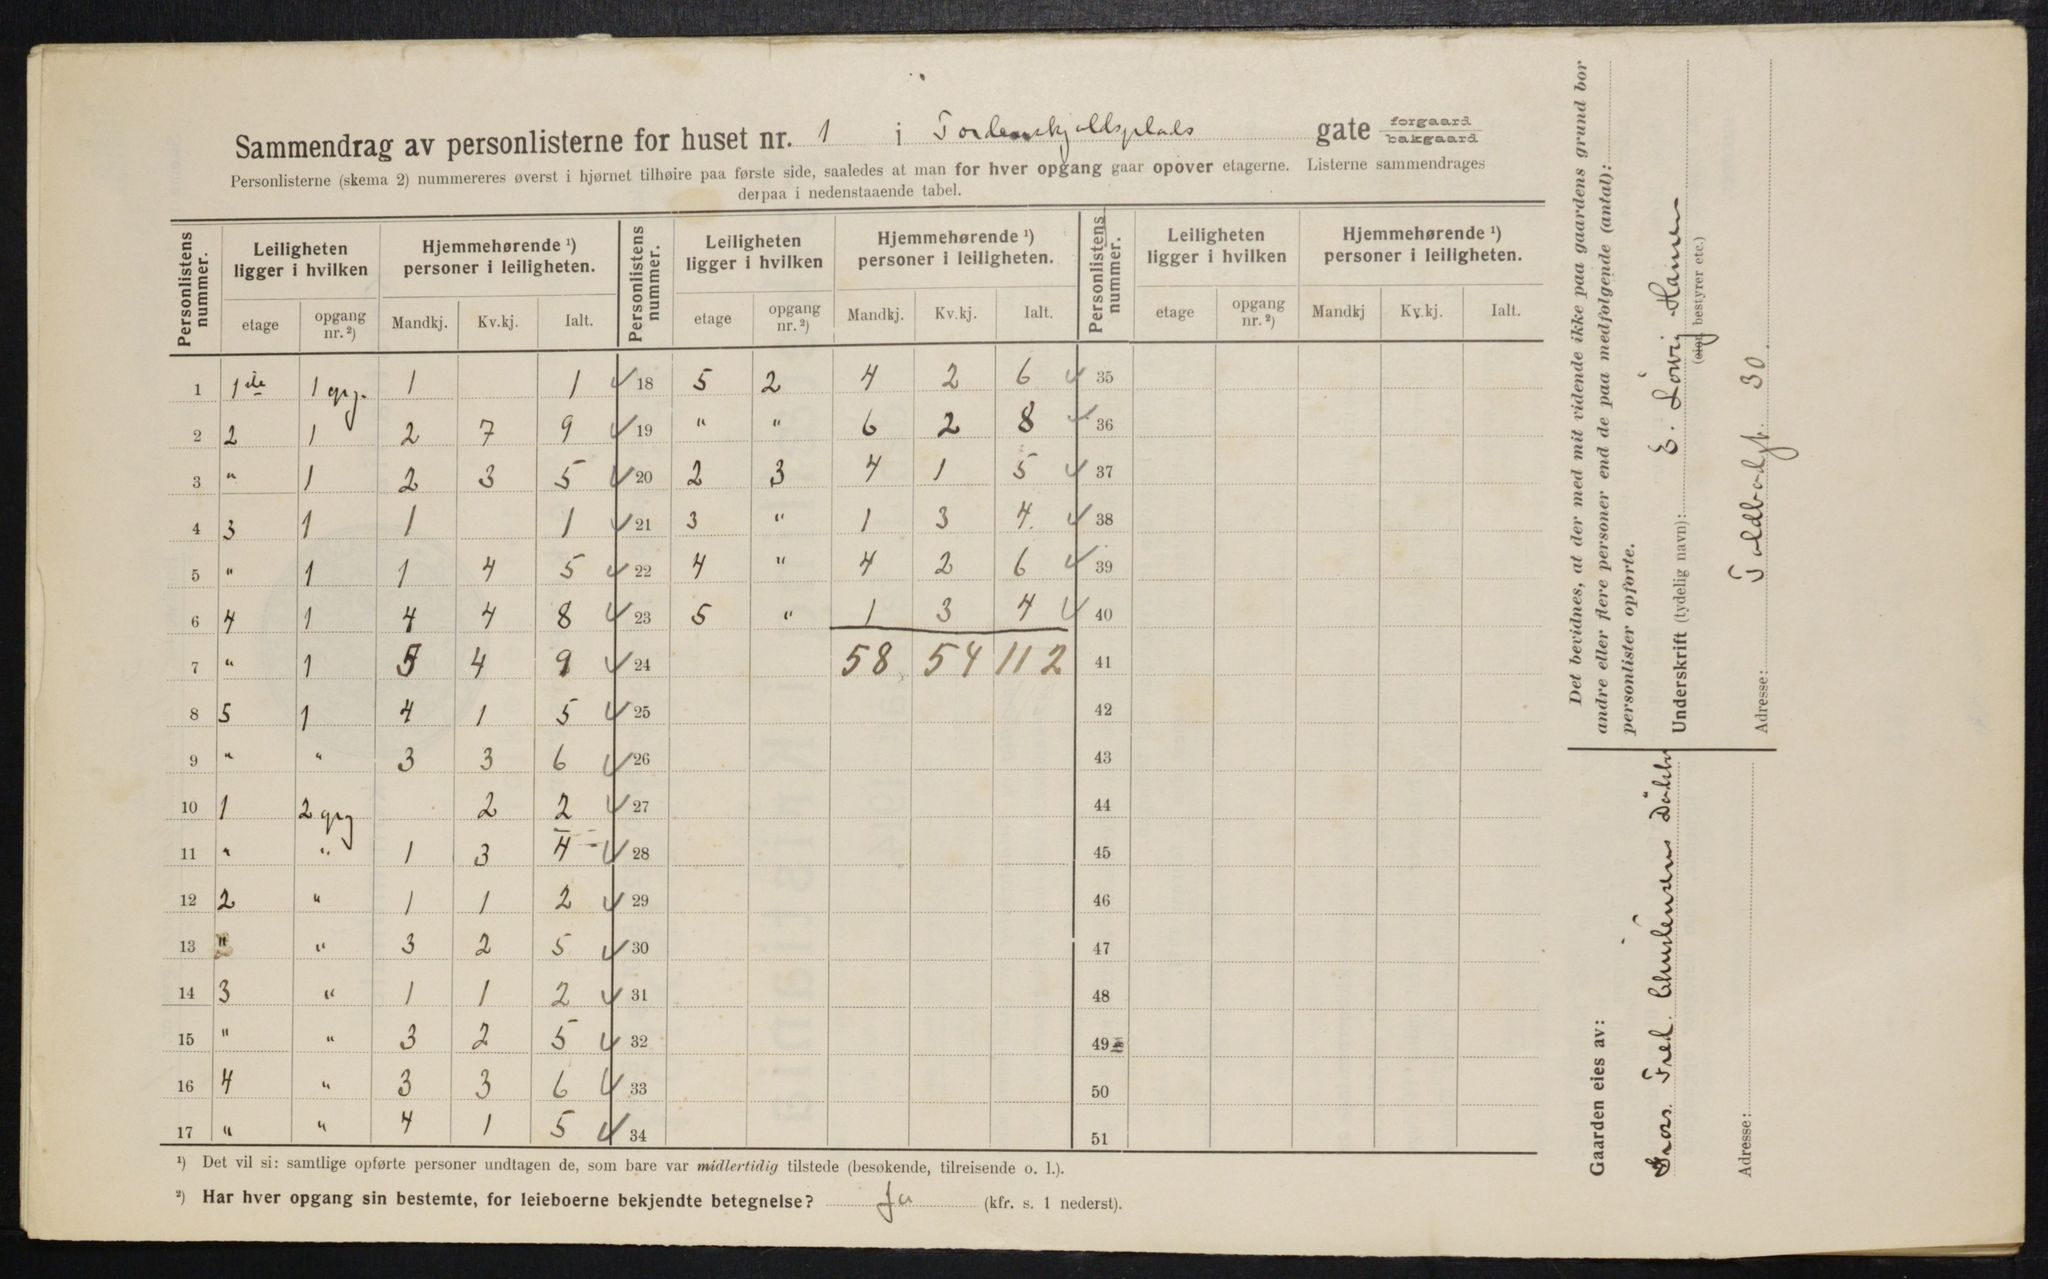 Sammendrag av personlisterne for huset nr. 1 i Tordenskjoldsplads gate forgaard bakgaard
Personlisterne (skema 2) nummereres øverst i hjørnet tilhøire paa første side, saaledes at man for hver opgang gaar opover etagerne. Listerne sammendrages
derpaa i nedenstaaende tabel.
Personlistens nummer. Leiligheten ligger i hvilken Hjemmehørende ¹) personer i leiligheten. Personlistens nummer. Leiligheten ligger i hvilken Hjemmehørende ¹) personer i leiligheten. Personlistens nummer. Leiligheten ligger i hvilken Hjemmehørende ¹) personer i leiligheten.
etage opgang nr. ²) Mandkj. Kv.kj. Ialt. etage opgang nr. ²) Mandkj. Kv.kj. Ialt. etage opgang nr. ²) Mandkj Kv.kj. Ialt.
1 1ste 1 opg. 1 1 18 5 2 4 2 6 35
2 2 1 2 7 9 19 " " 6 2 8 36
3 " 1 2 3 5 20 2 3 4 1 5 37
4 3 1 1 1 21 3 " 1 3 4. 38
5 " 1 1 4 5 22 4 " 4 2 6 39
6 4 1 4 4 8 23 5 " 1 3 4 40
7 " 1 5 4 9 24 58 54 112 41
8 5 1 4 1 5 25 42
9 " " 3 3 6 26 43
10 1 2 opg 2 2 27 44
11 " " 1 3 4 28 45
12 2 " 1 1 2 29 46
13 " " 3 2 5 30 47
14 3 " 1 1 2 31 48
15 " " 3 2 5 32 49
16 4 " 3 3 6 33 50
17 " " 4 1 5 34 51
¹) Det vil si: samtlige opførte personer undtagen de, som bare var midlertidig tilstede (besøkende, tilreisende o. l.).
²) Har hver opgang sin bestemte, for leieboerne bekjendte betegnelse? Ja (kfr. s. 1 nederst).
Det bevidnes, at der med mit vidende ikke paa gaardens grund bor
andre eller flere personer end de paa medfølgende (antal):
personlister opførte.
Underskrift (tydelig navn): E. Lövig Hansen
(eier, bestyrer etc.)
Adresse: Toldbodgt. 30.
Gaarden eies av:
Gros. Fred. Christensens Dödsbo
Adresse: